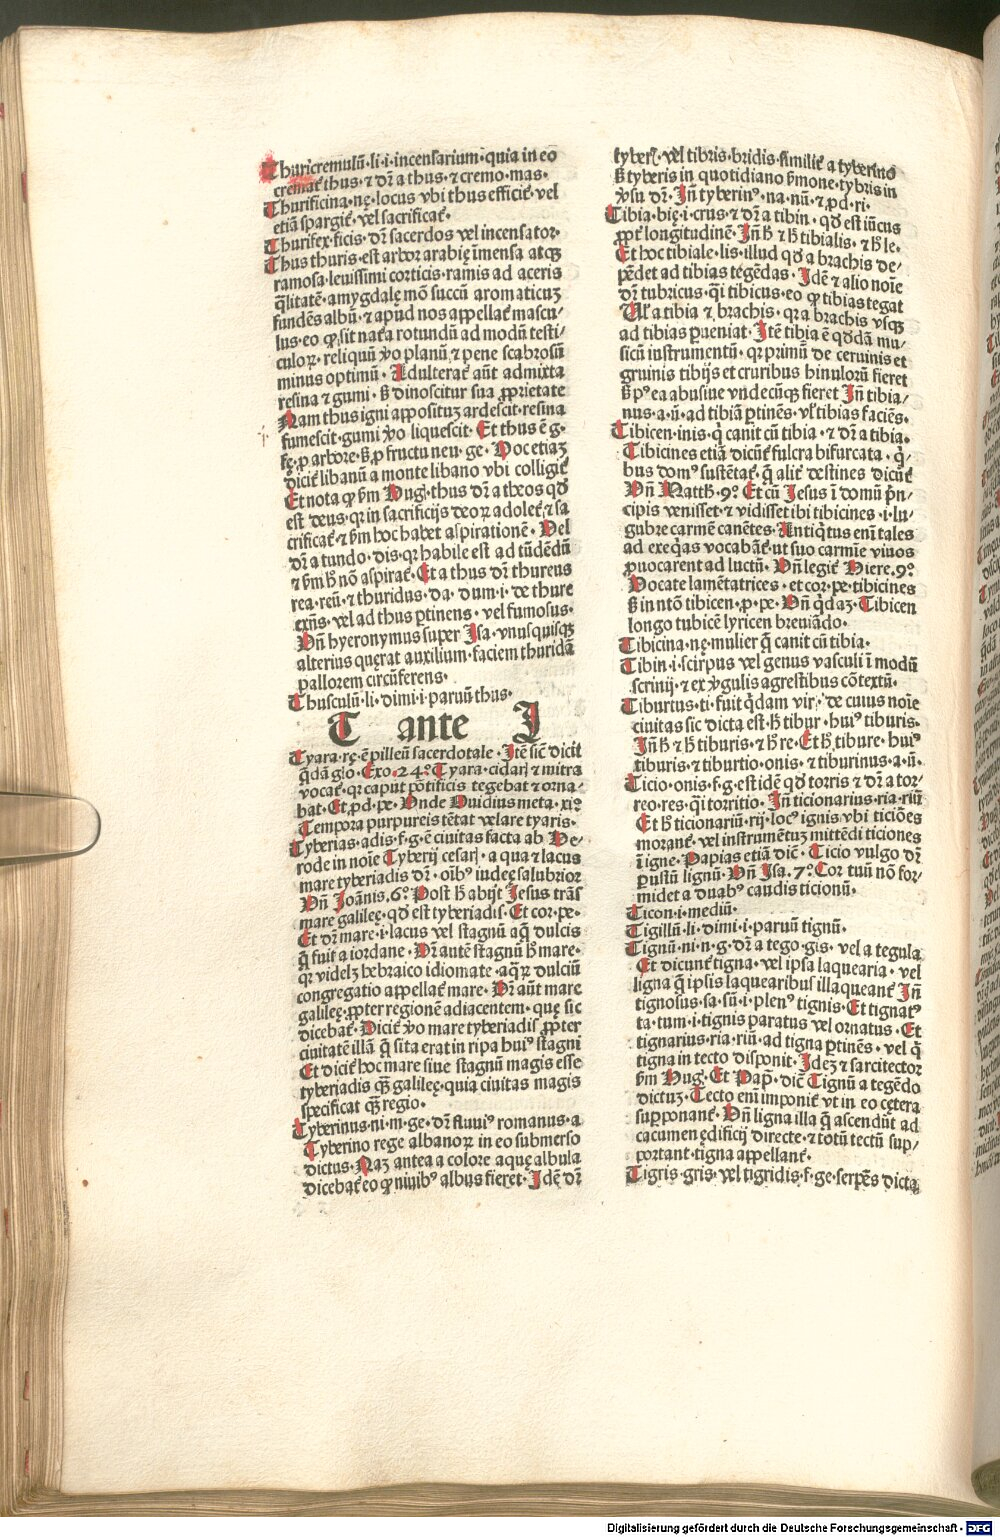 Thuricremulū·li·i·incensarium·quia in eo
cremat̄ thus·⁊ dr̄ a thus·⁊ cremo·mas·
Thurificina·nę·locus vbi thus efficit̄·vel
etiā spargit̄·vel sacrificat̄·
Thurifex·ficis·dr̄ sacerdos vel incensator·
Thus thuris·est arbor arabię īmensa atqꝫ
ramosa·leuissimi corticis·ramis ad aceris
q̄litatē·amygdalę mō succū aromaticuꝫ
fundēs albū·⁊ apud nos appellat̄ mascu/
lus·eo ꝙ sit nat̄a rotundū ad modū testi/
culoꝝ·reliquū ꝟo planū ⁊ pene scabrosū
minus optimū·Adulterat̄ aūt admixta
resina ⁊ gumi·sꝫ dinoscitur sua ꝓprietate
Nam thus igni appositуꝫ ardescit·resina
fumescit·gumi ꝟo liquescit·Et thus ē g·
fę·ꝓ arbore·sꝫ ꝓ fructu neu·ge·Hoc etiaꝫ
dicit̄ libanū a monte libano vbi colligit̄
Et nota ꝙ ẜm Aug·thus dr̄ a theos qḋ
est deus·qꝛ in sacrificijs deoꝝ adolet̄ ⁊ sa
crificat̄·⁊ ẜm hoc habet aspirationē·Vel
dr̄ a tundo·dis·qꝛ habile est ad tūdēdū
⁊ ẜm ħ nō aspirat̄·Et a thus dr̄ thureus
rea·reū·⁊ thuridus·da·dum·i·de thure
exn̄s·vel ad thus ꝑtinens·vel fumosus·
Vn̄ hyeronymus super Isa·vnusquisqꝫ
alterius quęrat auxilium·faciem thuridā
pallorem circūferens·
Thusculū·li·dimi·i·paruū thus·
T ante I
Tyara·rę·ē pilleū sacerdotale·Itē sic̄ dicit
q̄dā glo·Exo·24°·Tyara·cidarꝭ ⁊ mitra
vocat̄·qꝛ caput pōtificis tegebat ⁊ orna/
bat·Et ꝓd·pe·Vnde Ouidius meta·xi°
Tempora purpureis tētat velare tyaris·
Tyberias·adis·f·g·ē ciuitas facta ab He/
rode in noīe Tyberij cesarꝭ·a qua ⁊ lacus
mare tyberiadis dr̄·oīb⁹ iudeę salubrior
Vn̄ Joānis·6°·Post ħ abijt Jesus trās
mare galileę·qḋ est tyberiadis·Et cor·pe·
Et dr̄ mare·i·lacus vel stagnū aq̄ dulcis
q̄ fuit a iordane·Dr̄ antē stagnū ħ mare·
qꝛ videlꝫ hebraico idiomate·aq̄ꝝ dulciū
congregatio appellat̄ mare·Dr̄ aūt mare
galileę·ꝓpter regionē adiacentem·que sic
dicebat̄·Dicit̄ ꝟo mare tyberiadis ꝓpter
ciuitatē illā q̄ sita erat in ripa hui⁹ stagni
Et dicit̄ hoc mare siue stagnū magis esse
tyberiadis qꝫ̄ galileę·quia ciuitas magis
specificat qꝫ̄ regio·
Tyberinus·ni·m·ge·dr̄ fluui⁹ romanus·a
Tyberino rege albanoꝝ in eo submerso
dictus·Naꝫ antea a colore aquę albula
dicebat̄ eo ꝙ niuib⁹ albus fieret·Idē dr̄
tyberꝭ·vel tibris·bridis·similit̄ a tyberino
sꝫ tyberis in quotidiano ẜmone·tybris in
ꝟsu dr̄·In̄ tyberin⁹·na·nū·⁊ ꝓd·ri·
Tibia·bię·i·crus·⁊ dr̄ a tibin·qḋ est iūcus
ꝓpt̄ longitudinē·In̄ ħ ⁊ ħ tibialis·⁊ ħ le·
Et hoc tibiale·lis·illud qḋ a brachis de/
pēdet ad tibias tegēdas·Idē ⁊ alio noīe
dr̄ tubricus·q̇i tibicus·eo ꝙ tibias tegat
Vl̄ a tibia ⁊ brachis·qꝛ a brachis vsqꝫ
ad tibias ꝑueniat·Itē tibia ē qḋdā mu/
sicū instrumentū·qꝛ primū de ceruinis et
gruinis tibijs et cruribus hinulorū fieret
sꝫ p⁹ ea abusiue vndecūqꝫ fieret In̄ tibia/
nus·a·ū·ad tibiā ꝑtinēs·vl̄ tibias faciēs·
Tibicen·inis·q̇ canit cū tibia·⁊ dr̄ a tibia·
Tibicines etiā dicūt̄ fulcra bifurcata·q̇/
bus dom⁹ sustētat̄·q̄ alit̄ destines dicūt̄
Vn̄ Matth·9°·Et cū Jesus ī domū pͥn/
cipis venisset·⁊ vidisset ibi tibicines·i·lu/
gubre carmē canētes·Antiq̇tus enī tales
ad exeq̇as vocabāt̄·ut suo carmīe viuos
ꝓuocarent ad luctū·Vn̄ legit̄ Hiere·9°·
Vocate lamētatrices·et cor·pe·tibicines
sꝫ in ntō tibicen·ꝓ·pe·Vn̄ q̇daꝫ·Tibicen
longo tubicē lyricen breuiādo·
Tibicina·nę·mulier q̄ canit cū tibia·
Tibin·i·scirpus vel genus vasculi ī modū
scrinij·⁊ ex ꝟgulis agrestibus cōtextū·
Tiburtus·ti·fuit q̇dam vir·de cuius noīe
ciuitas sic dicta est·ħ tibur·hui⁹ tiburis·
In̄ ħ ⁊ ħ tiburis·⁊ ħ re·Et ħ tibure·hui⁹
tiburis·⁊ tiburtio·onis·⁊ tiburinus·a·ū·
Ticio·onis·f·g·est idē qḋ torris ⁊ dr̄ a tor/
reo·res·q̇i torritio·In̄ ticionarius·ria·riū
Et ħ ticionariū·rij·loc⁹ ignis vbi ticiōes
morant̄·vel instrumētuꝫ mittēdi ticiones
ī igne·Papias etiā dic̄·Ticio vulgo dr̄
ꝑustū lignū·Vn̄ Isa·7°·Cor tuū nō for/
midet a duab⁹ caudis ticionū·
Ticon·i·mediū·
Tigillū·li·dimi·i·paruū tignū·
Tignū·ni·n·g·dr̄ a tego·gis·vel a tegula
Et dicunt̄ tigna·vel ipsa laquearia·vel
ligna q̄ ipsis laquearibus illaqueant̄ In̄
tignosus·sa·sū·i·plen⁹ tignis·Et tignat⁹
ta·tum·i·tignis paratus vel ornatus·Et
tignarius·ria·riū·ad tigna ꝑtinēs·vel q̇
tigna in tecto disponit·Ideꝫ ⁊ sarcitector
ẜm Hug·Et Pap̄·dic̄ Tignū a tegēdo
dictuꝫ·Tecto enī imponit̄ vt in eo cętera
supponant̄·Vn̄ ligna illa q̄ ascendūt ad
cacumen ędificij directe·⁊ totū tectū sup/
portant·tigna appellant̄·
Tigris·gris·vel tigridis·f·ge·serpēs dicta
Digitalisierung gefördert durch die Deutsche Forschungsgemeinschaft - DFG